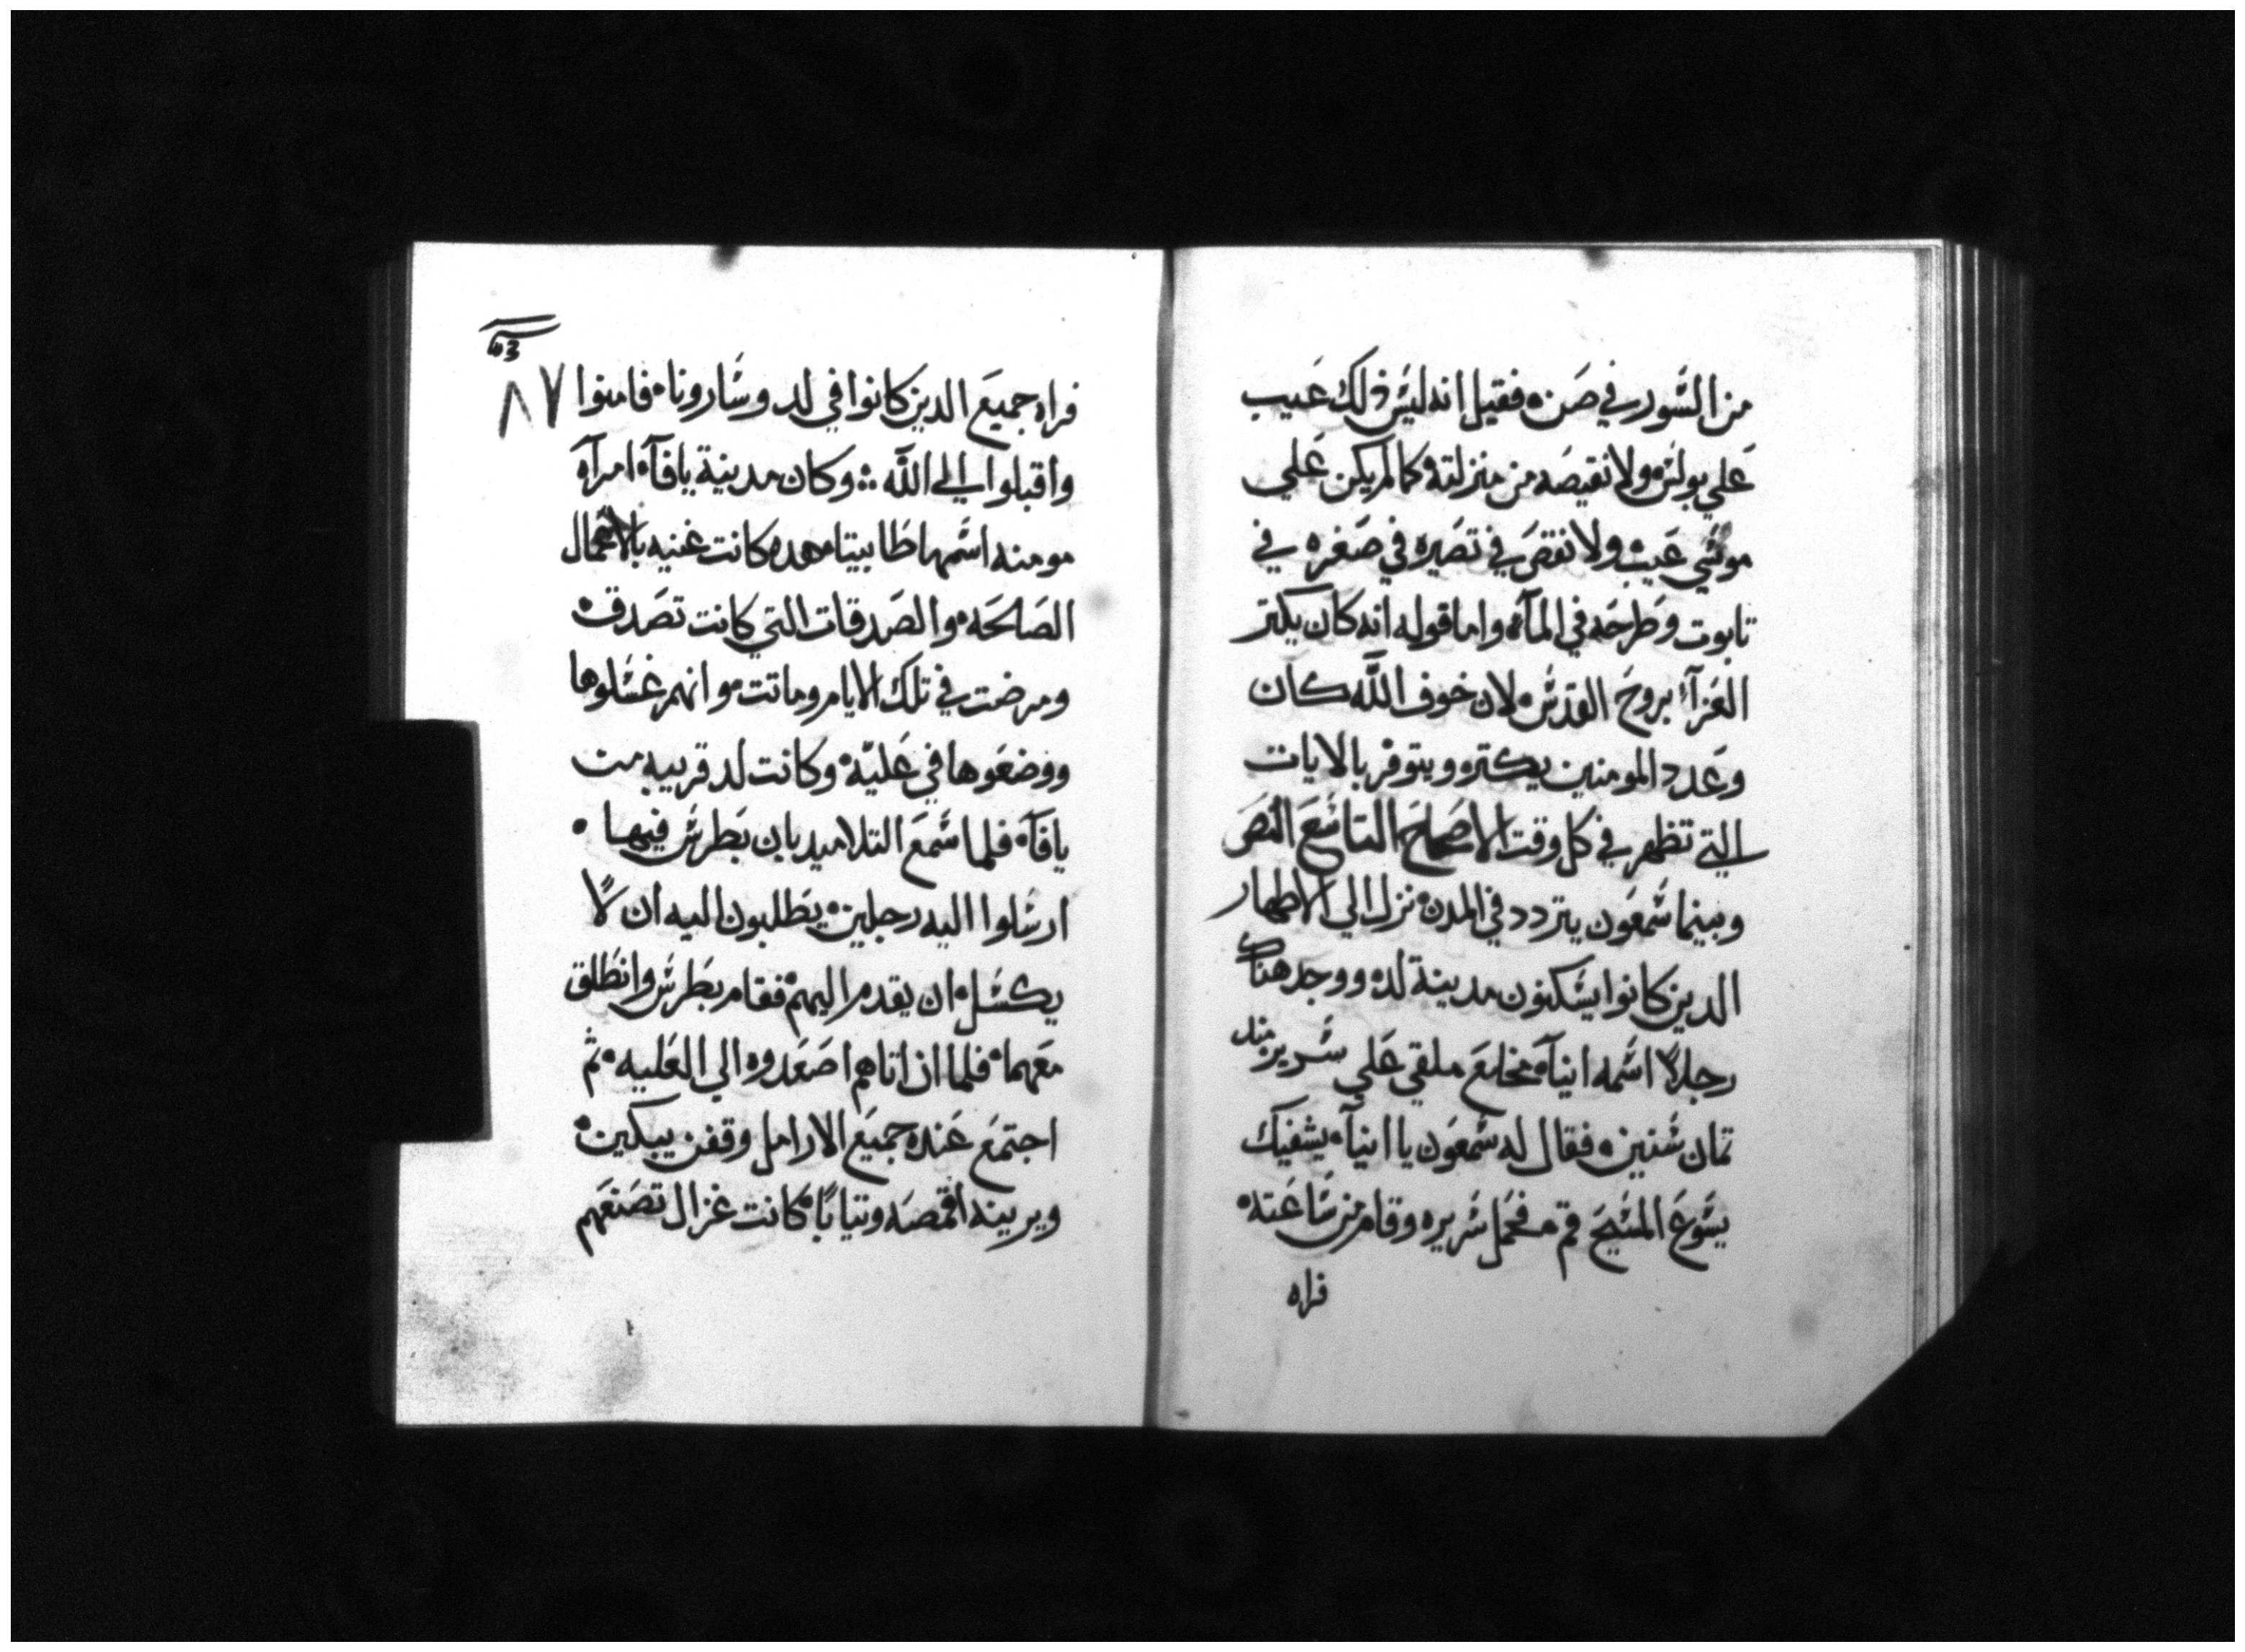 من السور في صن ه فقيل انه ليس ذلك عيب
علي بولس ولا نقيصه من منزلته كما لم يكن علي
موسي عيب ولا نقص في تصيره في صغره في
تابوت وطرحه في المآه واما قوله انه كان يكتر
العزآء بروح القدس لان خوف اللّه كان
وعدد المومنين يكتر ويتوفر بالايات
التي تظهر في كل وقت الاصحاح التاسع النص
وبينما شمعون يتردد في المدن نزل الي الاطهار
الدين كانوا يسكنون مدينة لد ووجد هناك
رجلاً اسمه انيآه مخلع ملقي علي سرير مند
تمان سنين ه فقال له شمعون يا انيآه يشفيك
يسوع المسيح قم فحمل سريره وقام من ساعته
فراه
٨٧
فراه جميع الدين كانوا في لد وسارونا ه فامنوا
واقبلوا الي اللّه ؞ وكان مدينة يافآه امرآه
مومنه اسمها طابيتا هده كانت غنيه بالاعمال
الصالحه والصدقات التي كانت تصدق ه
ومرضت في تلك الايام وماتت وانهم غسلوها
ووضعوها في عليّه وكانت لد قريبه من
يافآه فلما سمع التلاميد بان بطرس فيها ه
ارسلوا اليه رجلين يطلبون اليه ان لاً
يكسل ان يقدم اليهم فقام بطرس وانطلق
معهما ه فلما ان اتاهم اصعدوه الي العليه ثم
اجتمع عنده جميع الارامل وقفن يبكين ه
ويرينه اقمصه وتياباً كانت غزال تصنعهم